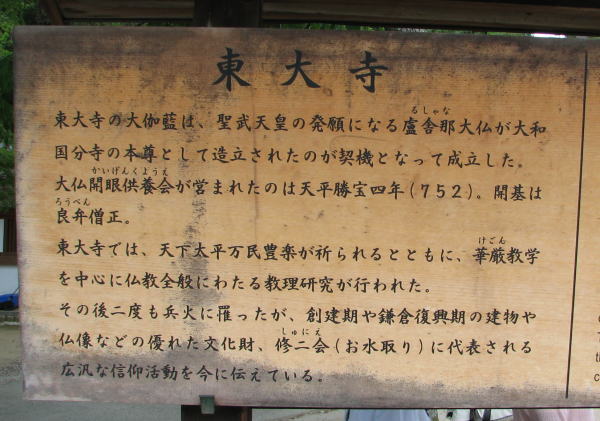 東大寺
東大寺の大伽藍は、聖武天皇の発願になる盧舎那大仏が大和
るしゃな
国分寺の本尊として造立されたのが契機となって成立した。
かいげんくようえ
大仏開眼供養会が営まれたのは天平勝宝四年(752)。開基は
ろうべん
良弁僧正。
東大寺では、天下太平万民豊楽が祈られるとともに、華厳教学
けごん
を中心に仏教全般にわたる教理研究が行われた。
その後二度も兵火に罹ったが、創建期や鎌倉復興期の建物や
しゅにえ
仏像などの優れた文化財、修二会(お水取り)に代表される
広汎な信仰活動を今に伝えている。